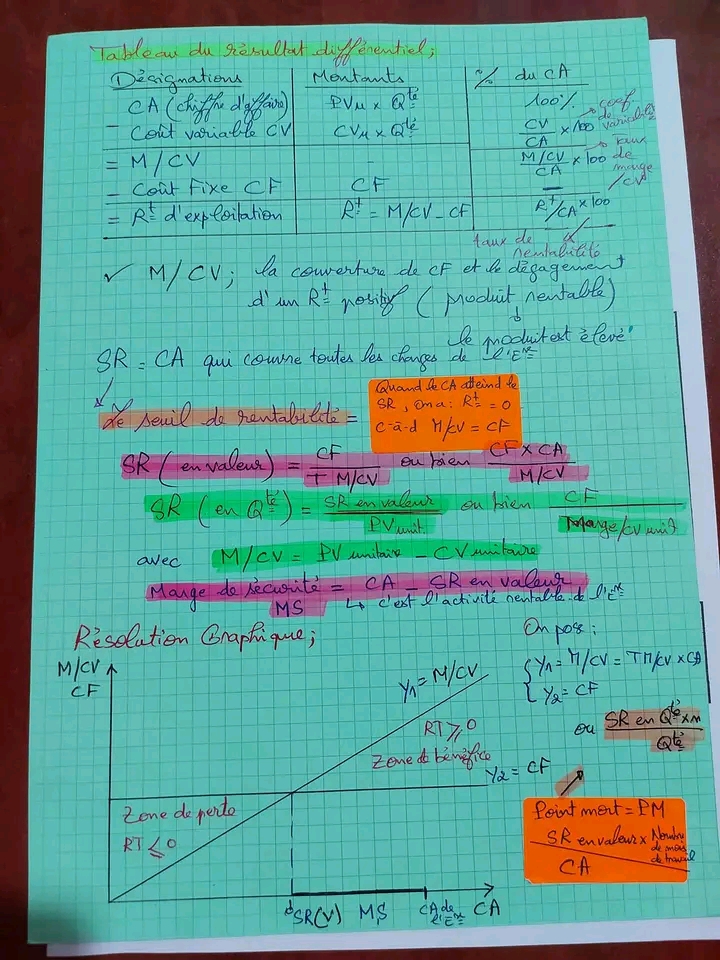 Tableau du résultat différentiel;
Désignations Montants % du CA
CA (chiffre d'affaire) PVu x Qté 100%
- Coût variable CV CVu x Qté CV/CA x 100 → coef de variabilité
= M/CV - M/CV/CA x 100 → Taux de marge /CV
- Coût Fixe CF CF -
= Rt d'exploitation Rt = M/CV - CF Rt/CA x 100
taux de rentabilité
✓ M/CV; la couverture de CF et le dégagement
d'un Rt positif (produit rentable)
le produit est élevé
SR = CA qui couvre toutes les charges de l'Ese
Le seuil de rentabilité =
Quand le CA atteind le
SR, on a: Rt = 0
c-à-d M/CV = CF
SR (en valeur) = CF / T M/CV ou bien CF x CA / M/CV
SR (en Qté) = SR en valeur / PV unit. ou bien CF / Marge/cv unit
avec M/CV = PV unitaire - CV unitaire
Marge de sécurité = CA - SR en valeur
MS ↳ c'est l'activité rentable de l'Ese
Résolution Graphique;
On pos:
{ Y1 = M/CV = TM/CV x CA
{ Y2 = CF
M/CV
CF
Y1 = M/CV
RT ⩾ 0
Zone de bénéfice
Y2 = CF
ou SR en Qté x n / Qté
Zone de perte
RT ⩽ 0
Point mort = PM
SR en valeur x Nombre de mois de travail
CA
SR(V) MS CA de l'Ese CA